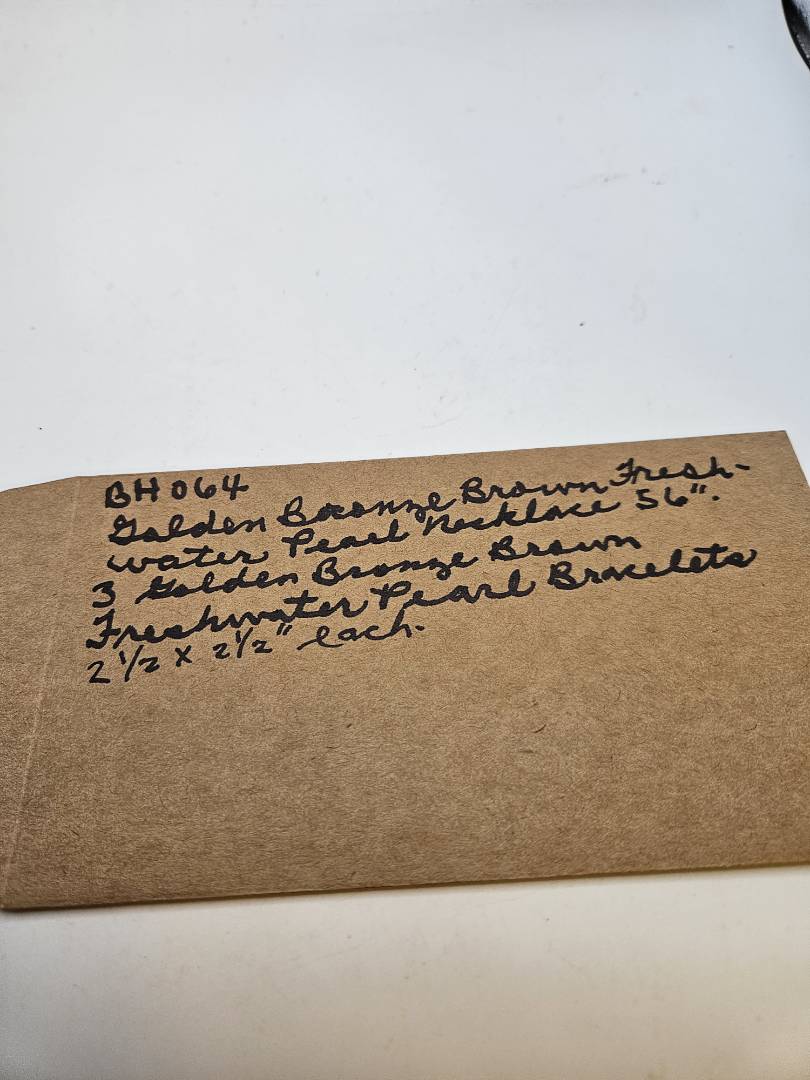 BH064
Golden Bronze Brown Fresh-
water Pearl Necklace 56".
3 Golden Bronze Brown
Freshwater Pearl Bracelets
2 1/2 x 2 1/2" each.